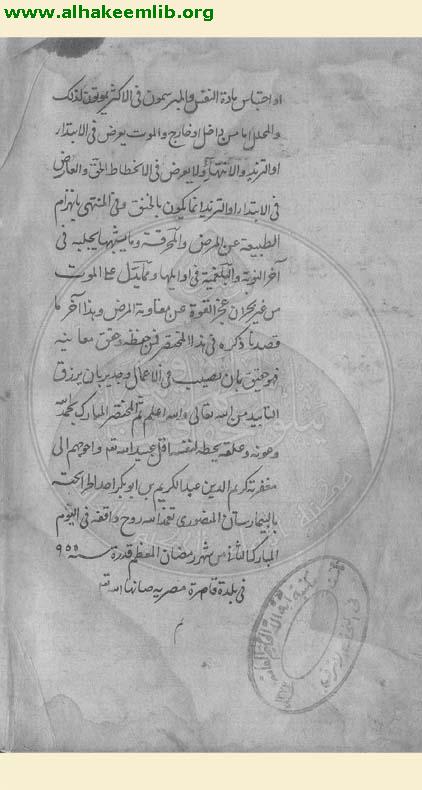 www.alhakeemlib.org
او احتباس مادة النفس والمبرسمون فى الاكثر يموتون لذلك
والمحلل اما من داخل او خارج والموت يعرض فى الابتدار
او التزيد والانتهاء ولا يعرض فى الانحطاط الحق والعارض
فى الابتدا او التزيد انما يكون بالخنق وفى المنتهى بانهزام
الطبيعة عن المرض والمحرقة وما يشبهها يجلبه فى
آخر النوبة والبلغمية فى اوايلها ومما يدل على الموت
من غير بحران عجز القوة عن مقاومة المرض وهذا آخر ما
قصدنا ذكره فى هذا المختصر فمن حفظه وحقق معانيه
فهو حقيق بان يصيب فى الاعمال وجدير بان يرزق
التاييد من الله تعالى والله اعلم تم المختصر المبارك بحمد الله
وعونه وعلقه بخطه لنفسه اقل عبيد الله واحوجهم الى
مغفرته كريم الدين عبد الكريم بن ابو بكر احد اطباء
بالبيمارستان المنصورى تغمد الله روح واقفه فى اليوم
المبارك الثانى من شهر رمضان المعظم قدره سنه ٩٥٥
فى بلدة قاهرة مصريه صانها الله
م